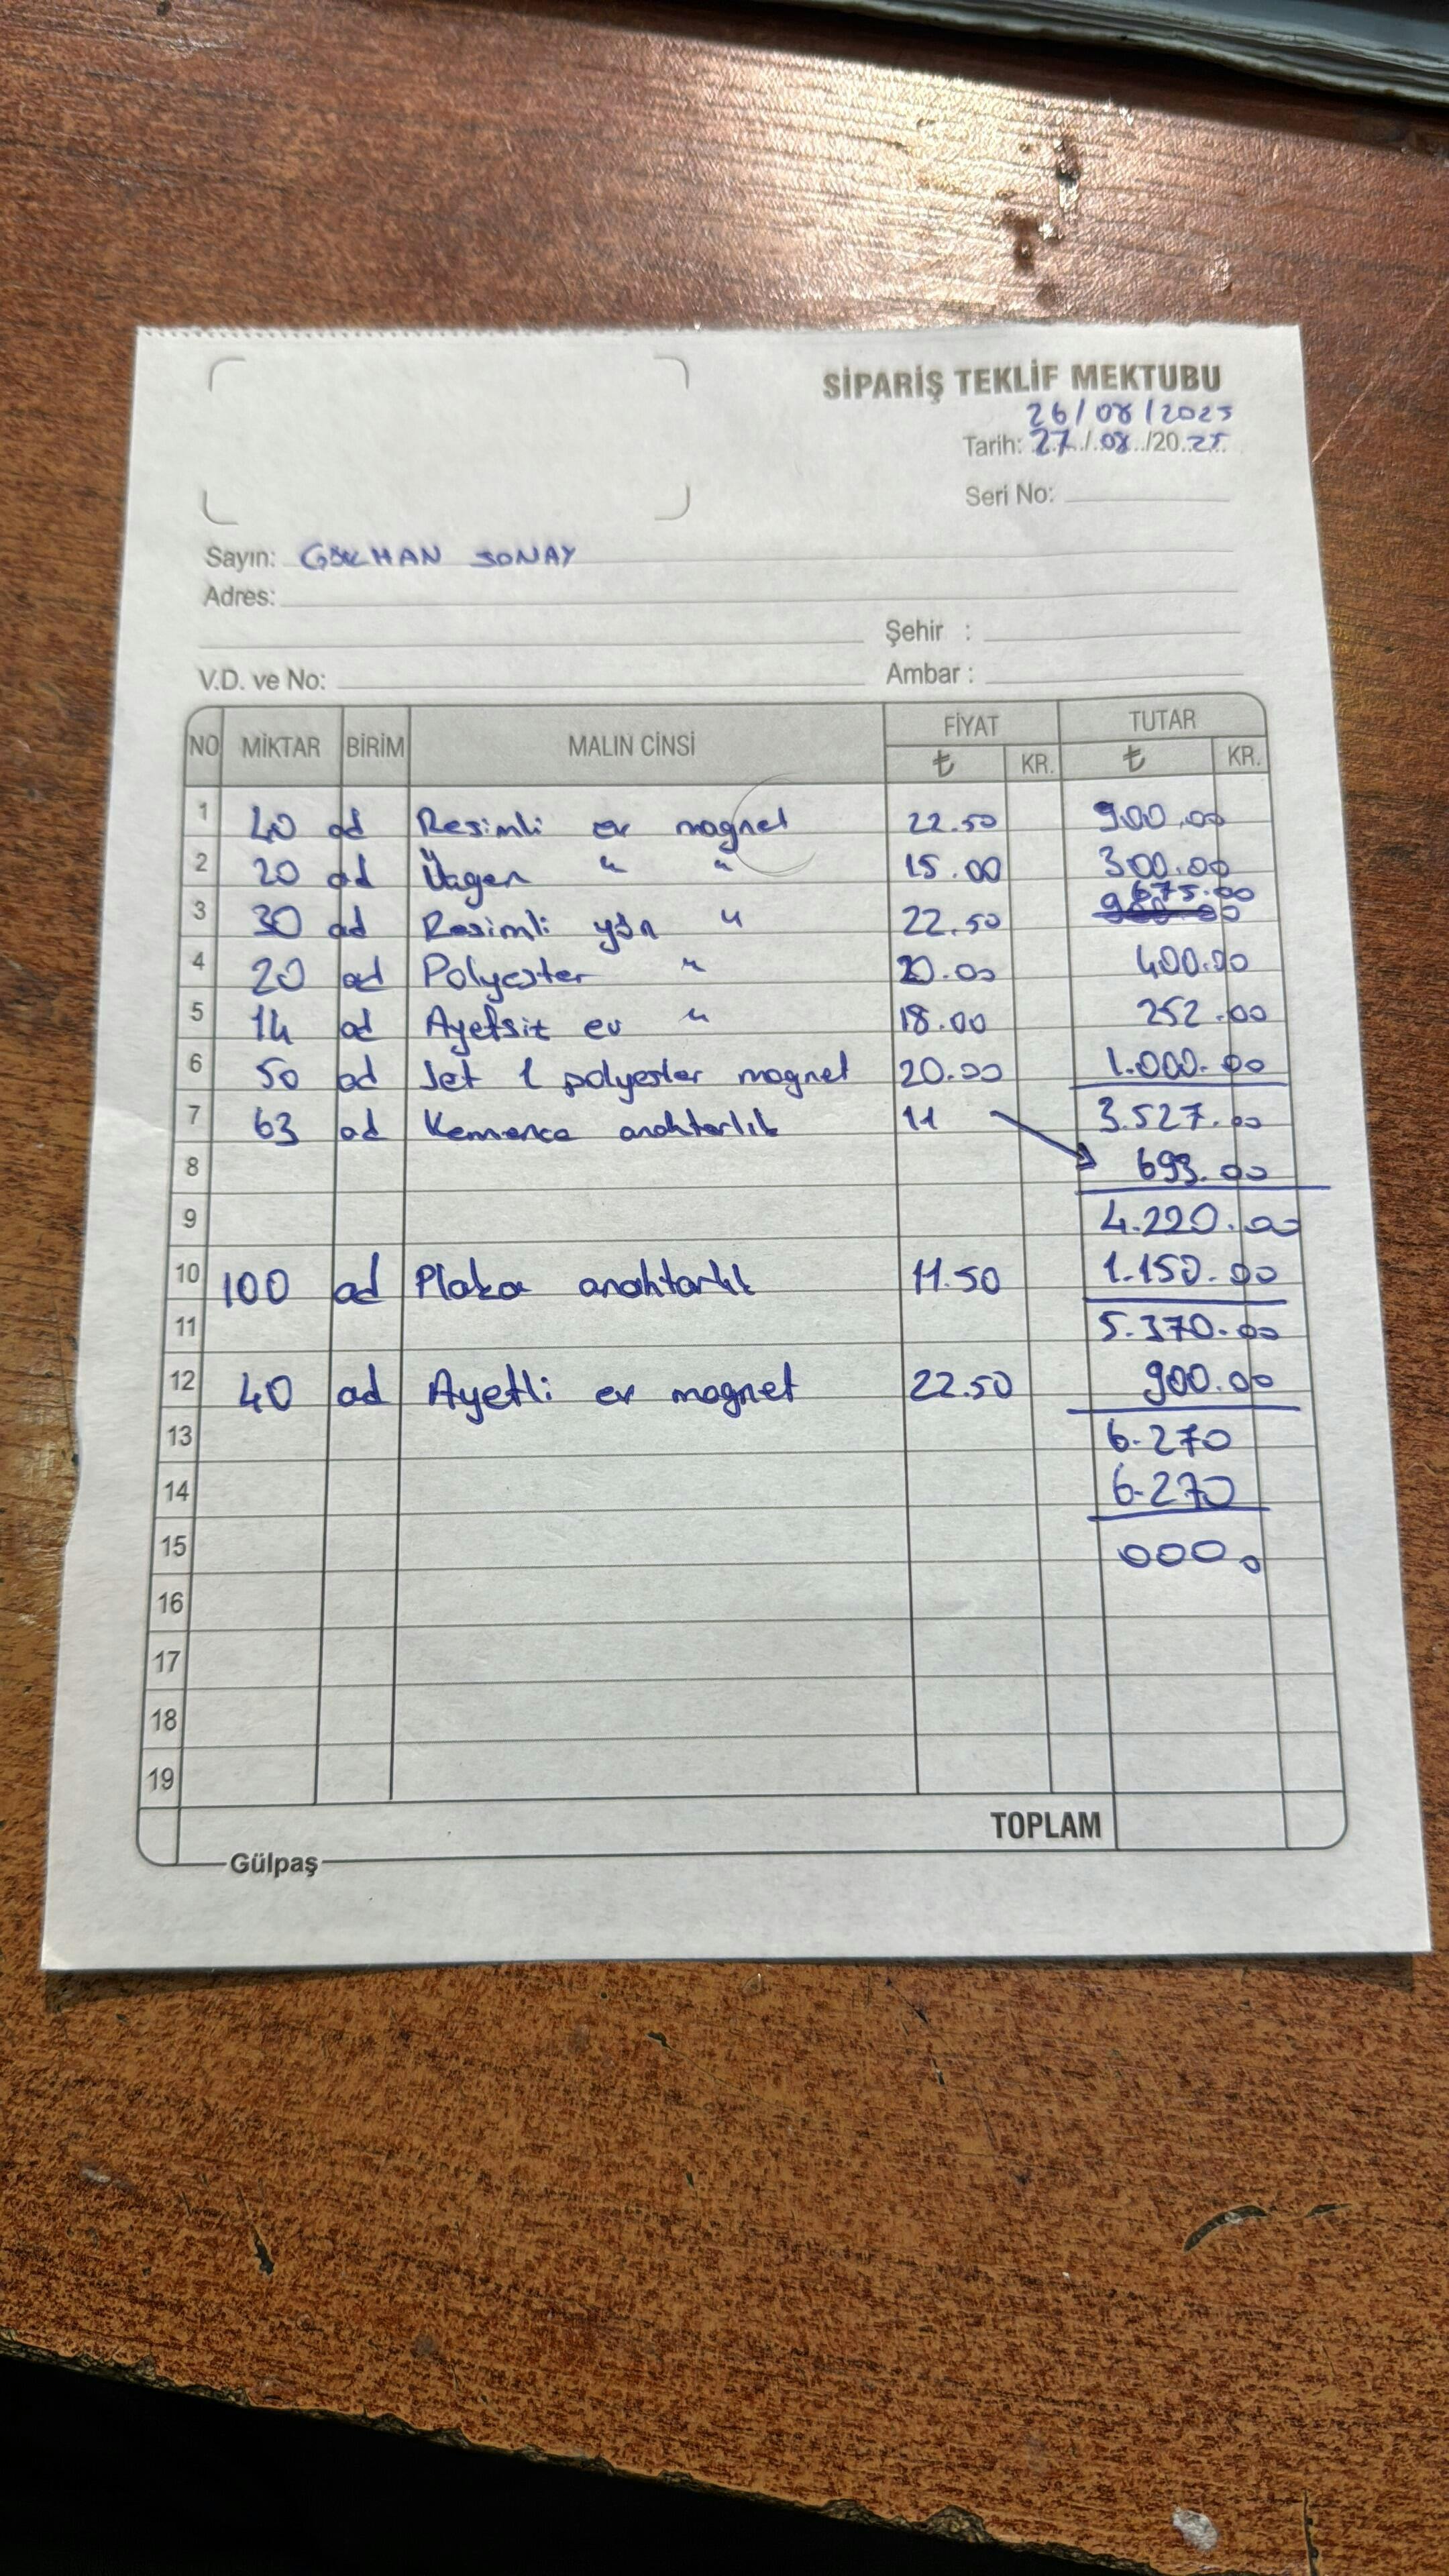 SİPARİŞ TEKLİF MEKTUBU
26/08/2025
Tarih: 27/08/2025
Seri No:
Sayın: GÖKHAN SONAY
Adres:
Şehir :
V.D. ve No: Ambar :
NO MİKTAR BİRİM MALIN CİNSİ FİYAT TUTAR
₺ KR. ₺ KR.
1 40 ad Resimli ev magnet 22.50 900.00
2 20 ad Üçgen " " 15.00 300.00
675.00
3 30 ad Resimli yön " 22.50
4 20 ad Polyester " 20.00 400.00
5 14 ad Ayetsiz ev " 18.00 252.00
6 50 ad Jet 1 polyester magnet 20.00 1.000.00
7 63 ad Kemençe anahtarlık 11 3.527.00
8 693.00
9 4.220.00
10 100 ad Plaka anahtarlık 11.50 1.150.00
11 5.370.00
12 40 ad Ayetli ev magnet 22.50 900.00
13 6.270
14 6.270
15 000 0
16
17
18
19
TOPLAM
Gülpaş